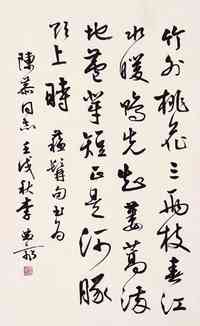 竹外桃花三兩枝春江
水暖鴨先知蔞蒿滿
地蘆芽短正是河豚
欲上時 蘇髯句書為
陳慕同志壬戌秋李